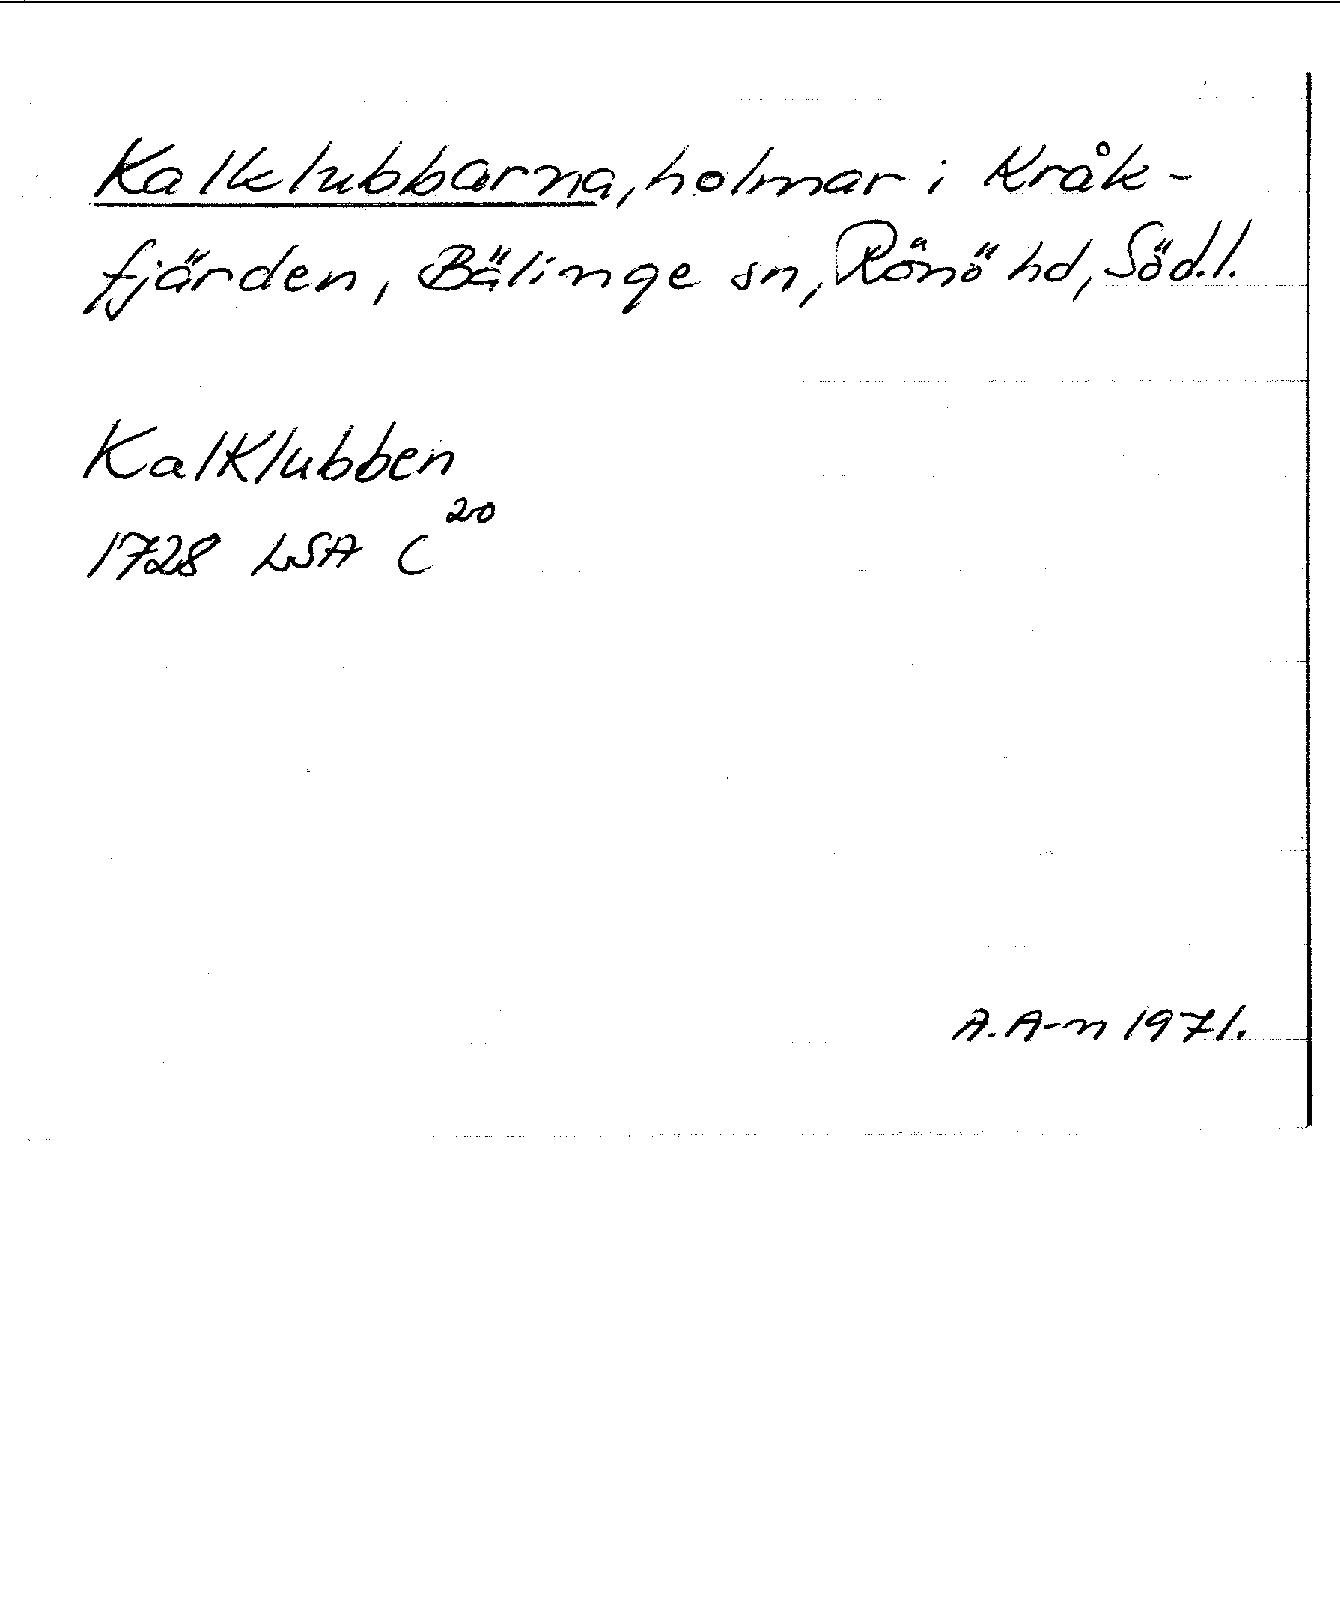 Kalklubbarna, holmar i Kråk-
fjärden, Bälinge sn, Rönö hd, Söd.l.
Kalklubben
1728 LSA C²⁰
A. A-n 1971.